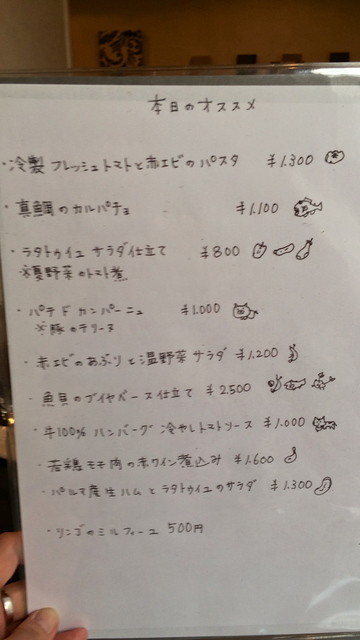 本日のオススメ
・冷製 フレッシュトマトと赤エビのパスタ ¥1.300
・真鯛のカルパチョ ¥1.100
・ラタトゥイユ サラダ仕立て ¥800
※夏野菜のトマト煮
・パテ ド カンパーニュ ¥1.000
※豚のテリーヌ
・赤エビのあぶりと温野菜サラダ ¥1.200
・魚貝のブイヤベース仕立て ¥2500
・牛100% ハンバーグ 冷やしトマトソース ¥1.000
・若鶏モモ肉の赤ワイン煮込み ¥1.600
・パルマ産生ハムとラタトゥイユのサラダ ¥1.300
・リンゴのミルフィーユ 500円